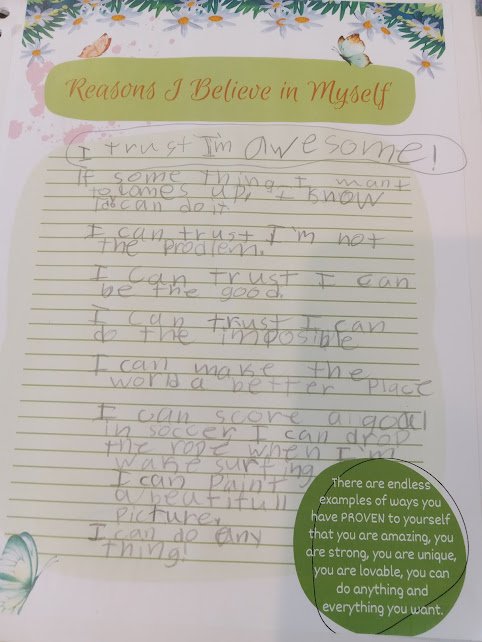 Reasons I Believe in Myself
I trust I'm awesome!
If some thing I want
to comes up, I know
I can do it
I can trust I'm not
the problem.
I can trust I can
be the good.
I can trust I can
do the imposible
I can make the
world a better place
I can score a goal
in soccer I can drop
the rope when I'm
wake surfing
I can paint
a beatifull
picture.
I can do any
thing!
There are endless
examples of ways you
have PROVEN to yourself
that you are amazing, you
are strong, you are unique,
you are lovable, you can
do anything and
everything you want.